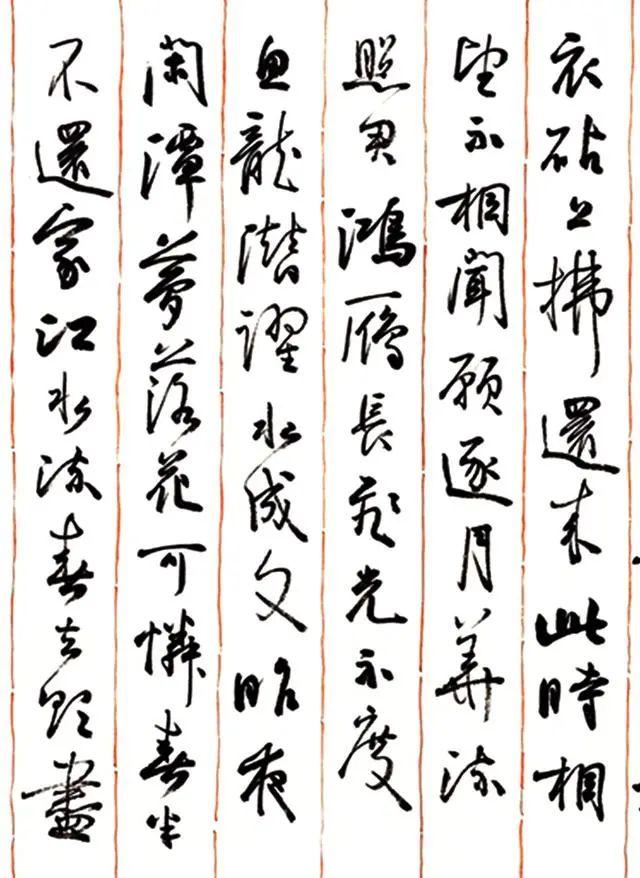 衣砧上拂還來此時相
望不相聞願逐月華流
照君鴻雁長飛光不度
魚龍潛躍水成文昨夜
閑潭夢落花可憐春半
不還家江水流春去欲盡